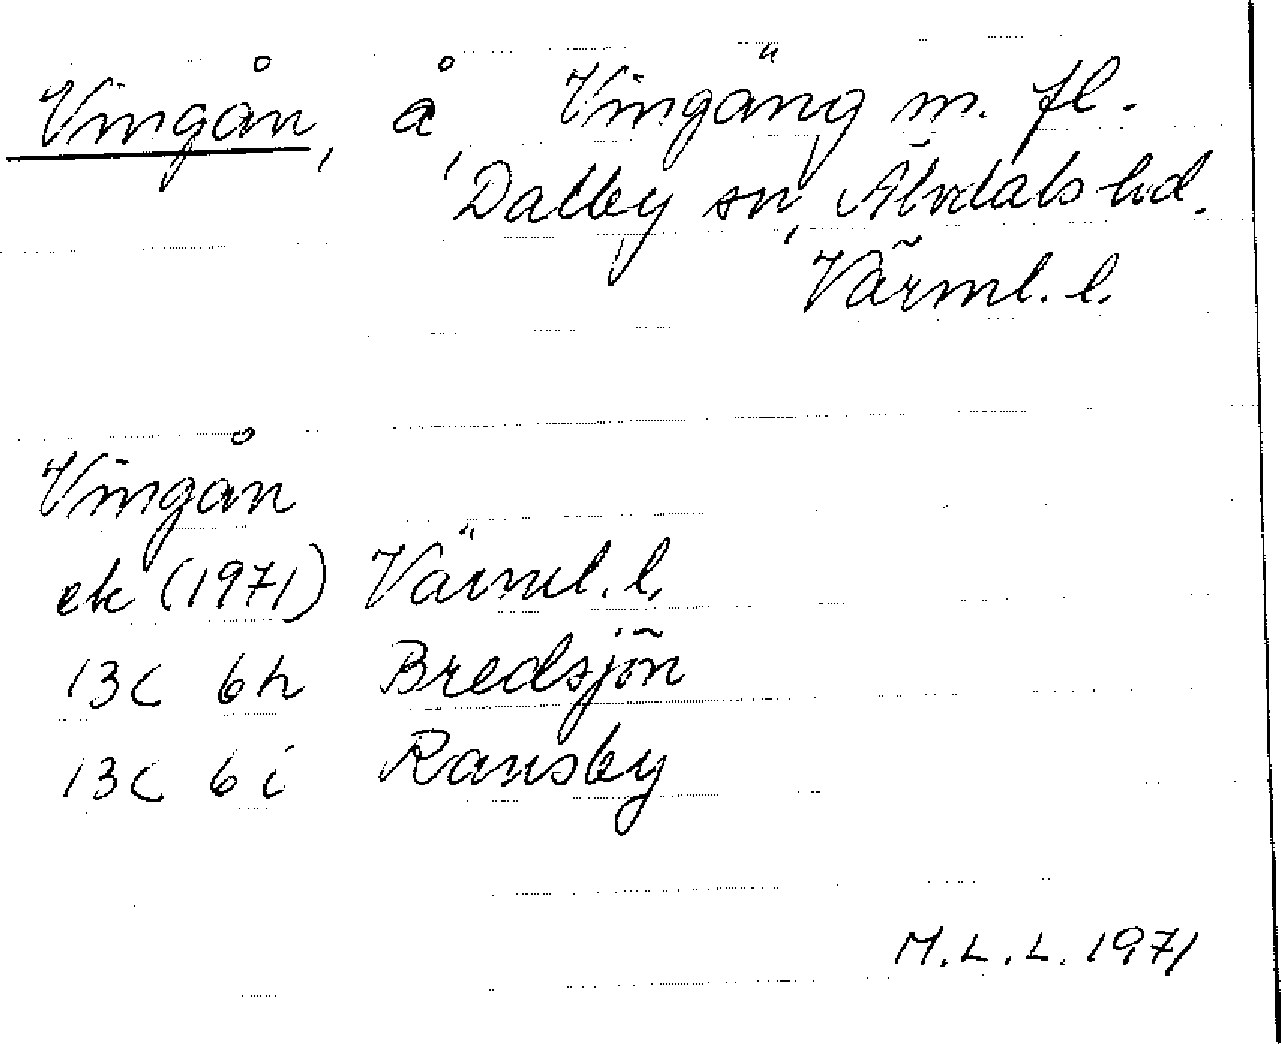 Vingån, å, Vingäng m. fl.
Dalby sn, Älvdals hd.
Värml. l.
Vingån
ek (1971) Värml. l.
13C 6h Bredsjön
13C 6i Ransby
M.L.L. 1971